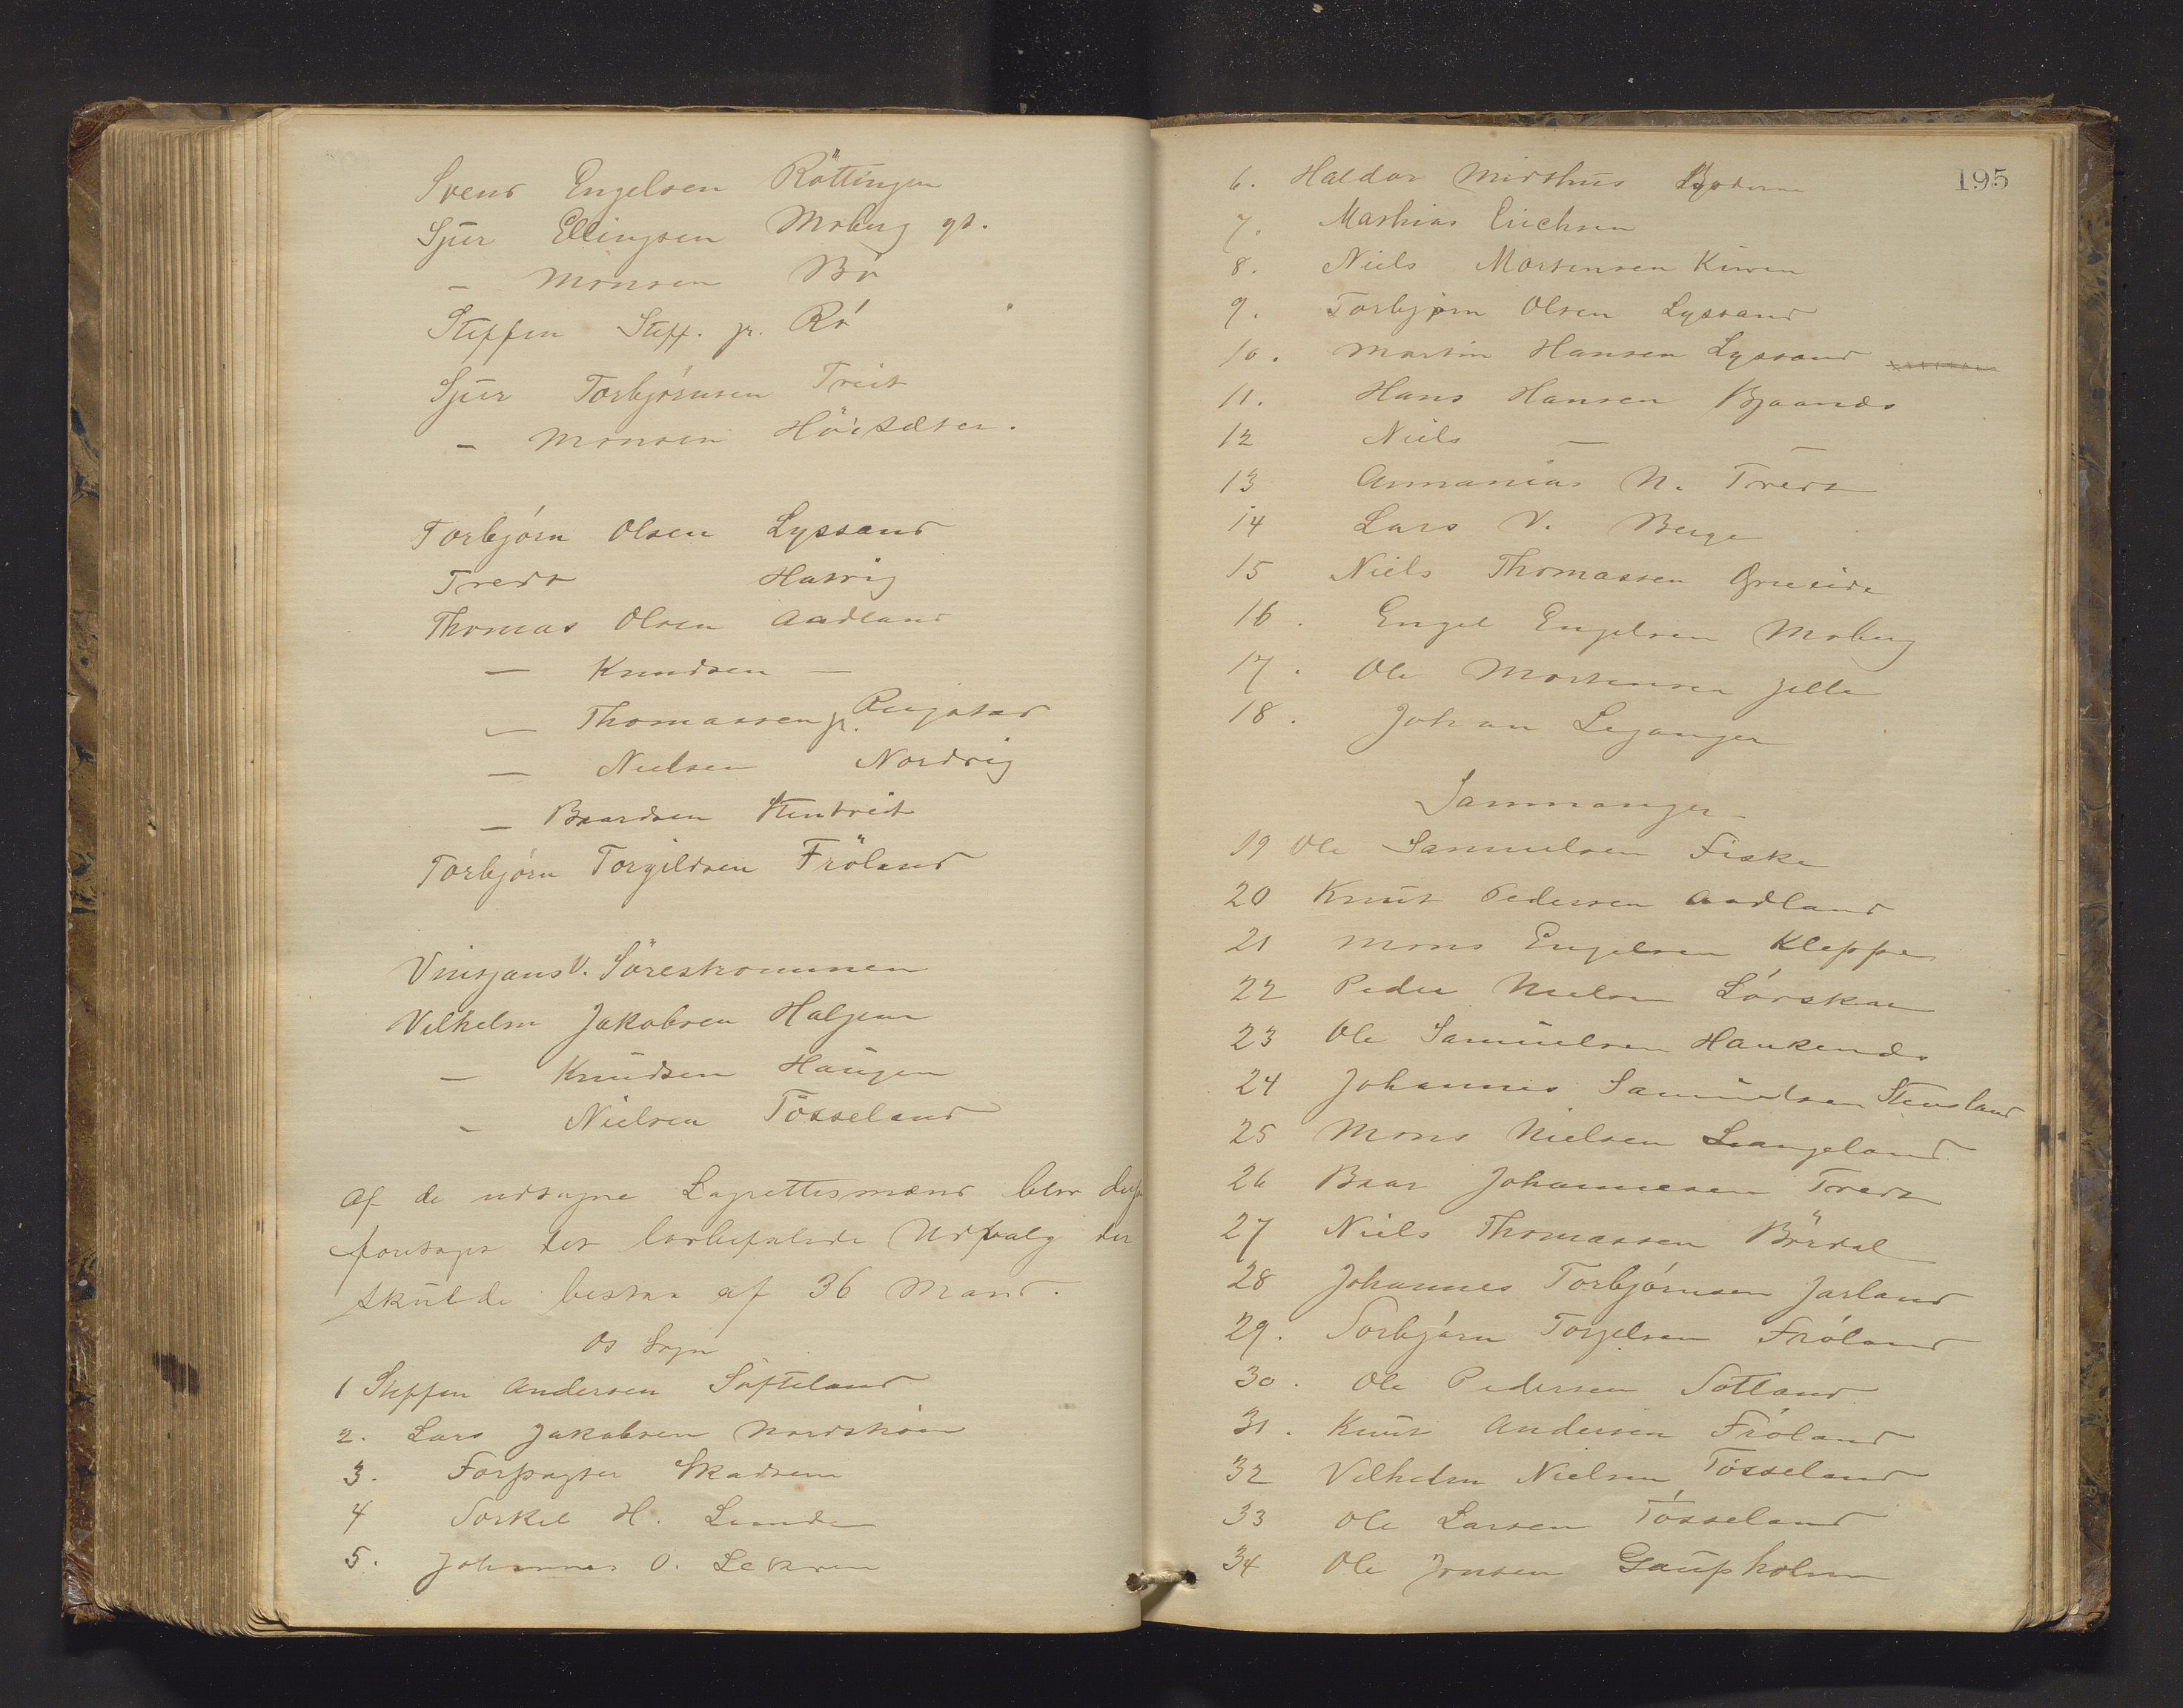 Svend Engelsen Röttingen
Sjur Ellingsen Moberg gd.
– Monsen Bö
Steffen Steff. jr. Rö
Sjur Torbjörnsen Tveit
– Monsen Höisæter.
Torbjörn Olsen Lyssand
Tvedt Hatvig
Thomas Olsen Aadland
– Knudsen –
– Thomassen jr.
– Nielsen Nordvig
– Baardsen
Torbjörn Torgildsen Fröland
Vinsjans V. Sörestrommen
Vilhelm Jakobsen Haljem
– Knudsen Haugen
– Nielsen Tösseland
Af de udtagne Lagrettesmænd blev
foretaget det lovbefalede Udvalg der
skulde bestaa af 36 Mand.
Os Sogn
1 Steffen Andersen Söfteland
2. Lars Jakobsen Nordströn
3. Forpagter Skadsem
4 Torkel H. Lunde
5. Johannes O. Lekven
195
6. Haldor Midthus
7. Mathias Erichsen
8. Niels Mortensen Kuven
9. Torbjørn Olsen Lyssand
10. Martin Hansen Lyssand
11. Hans Hansen Bjaanæs
12 Niels – –
13 Annanias N. Tvedt
14 Lars V. Berge
15 Niels Thomassen Grueide
16. Engel Engelsen Moberg
17. Ole Mortensen Jelle
18. Johan Leganger
Sammanger
19 Ole Samuelsen Fiske
20 Knut Pedersen Aadland
21 Mons Engelsen Kleppe
22 Peder Nielsen Lönskar
23 Ole Samuelsen Haukenæs
24 Johannes Samuelsen Stensland
25 Mons Nielsen Langeland
26 Baar Johannesen Tvedt
27 Niels Thomassen Bördal
28 Johannes Torbjörnsen Jarland
29. Torbjörn Torgelsen Fröland
30. Ole Pedersen Sotland
31. Knut Andersen Fröland
32 Vilhelm Nielsen Tösseland
33 Ole Larsen Tösseland
34 Ole Jonsen Gaupholm